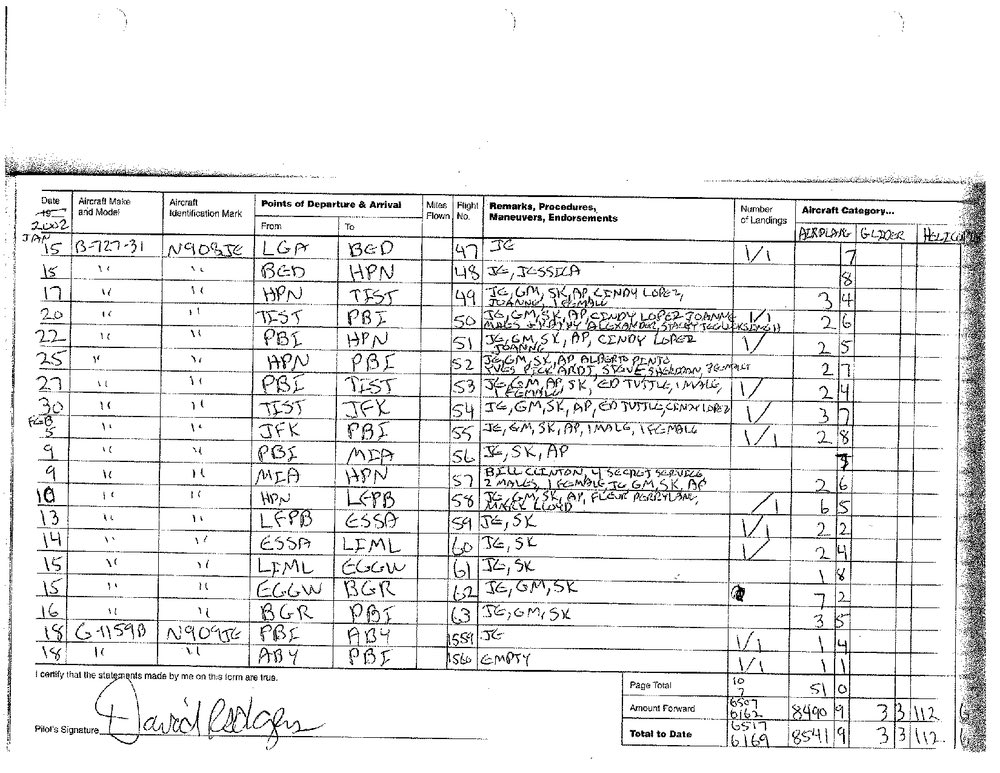 Date Aircraft Make and Model Aircraft Identification Mark Points of Departure & Arrival Miles Flown Flight No. Remarks, Procedures, Maneuvers, Endorsements Number of Landings Aircraft Category...
19 2002 From To AIRPLANE GLIDER HELICOPTER
JAN 15 B-727-31 N908JE LGA BED 47 JE 1/1 7
15 " " BED HPN 48 JE, JESSICA 8
17 " " HPN TIST 49 JE, GM, SK, AP, CINDY LOPEZ, JOANNE, 1 FEMALE 3 4
20 " " TIST PBI 50 JE, GM, SK, AP, CINDY LOPEZ JOANNE 1/1 2 6
ALEXANDER,
22 " " PBI HPN 51 JE, GM, SK, AP, CINDY LOPEZ JOANNE 1/ 2 5
25 " " HPN PBI 52 JE, GM, SK, AP ALBERTO PINTO 2 7
27 " " PBI TIST 53 JE, GM, AP, SK, ED TUTTLE, 1 MALE, 1 FEMALE 1/ 2 4
30 " " TIST JFK 54 JE, GM, SK, AP, ED TUTTLE, CINDY LOPEZ 1/ 3 7
FEB 5 " " JFK PBI 55 JE, GM, SK, AP, 1 MALE, 1 FEMALE 1/1 2 8
9 " " PBI MIA 56 JE, SK, AP
9 " " MIA HPN 57 BILL CLINTON, 4 SECRET SERVICE, 2 MALES, 1 FEMALE, JE, GM, SK, AP 2 6
10 " " HPN LFPB 58 JE, GM, SK, AP, FLEUR PERRY LANE, MARK LLOYD /1 6 5
13 " " LFPB ESSA 59 JE, SK 1/1 2 2
14 " " ESSA LIML 60 JE, SK 1/ 2 4
15 " " LIML EGGW 61 JE, SK 1 8
15 " " EGGW BGR 62 JE, GM, SK 7 2
16 " " BGR PBI 63 JE, GM, SK 3 5
18 G-1159B N909JE PBI ABY 1559 JE 1/1 1 4
18 " " ABY PBI 1560 EMPTY 1/1 1 1
I certify that the statements made by me on this form are true.
Page Total 10 7 51 0
Amount Forward 6507 6162 8490 9 3 3 112
Pilot's Signature David Rodgers
Total to Date 6517 6169 8541 9 3 3 112